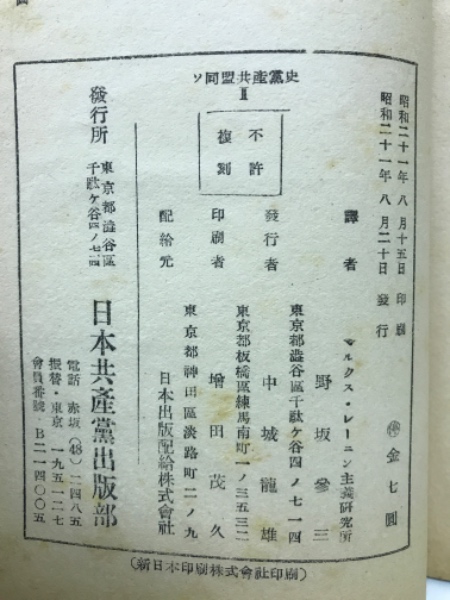 ソ同盟共產黨史
Ⅱ
昭和二十一年八月十五日 印刷
昭和二十一年八月二十日 發行
金七圓
不許
複刻
譯者
マルクス・レーニン主義研究所
野坂參三
東京都澁谷區千駄ケ谷四ノ七一四
發行者 中城龍雄
東京都板橋區練馬南町一ノ三五三二
印刷者 增田茂久
東京都神田區淡路町二ノ九
配給元 日本出版配給株式會社
發行所
東京都澁谷區
千駄ケ谷四ノ七一四
日本共產黨出版部
電話 赤坂(48)二四八五
振替・東京 一九五一二七
會員番號・B二一四〇〇五
(新日本印刷株式會社印刷)